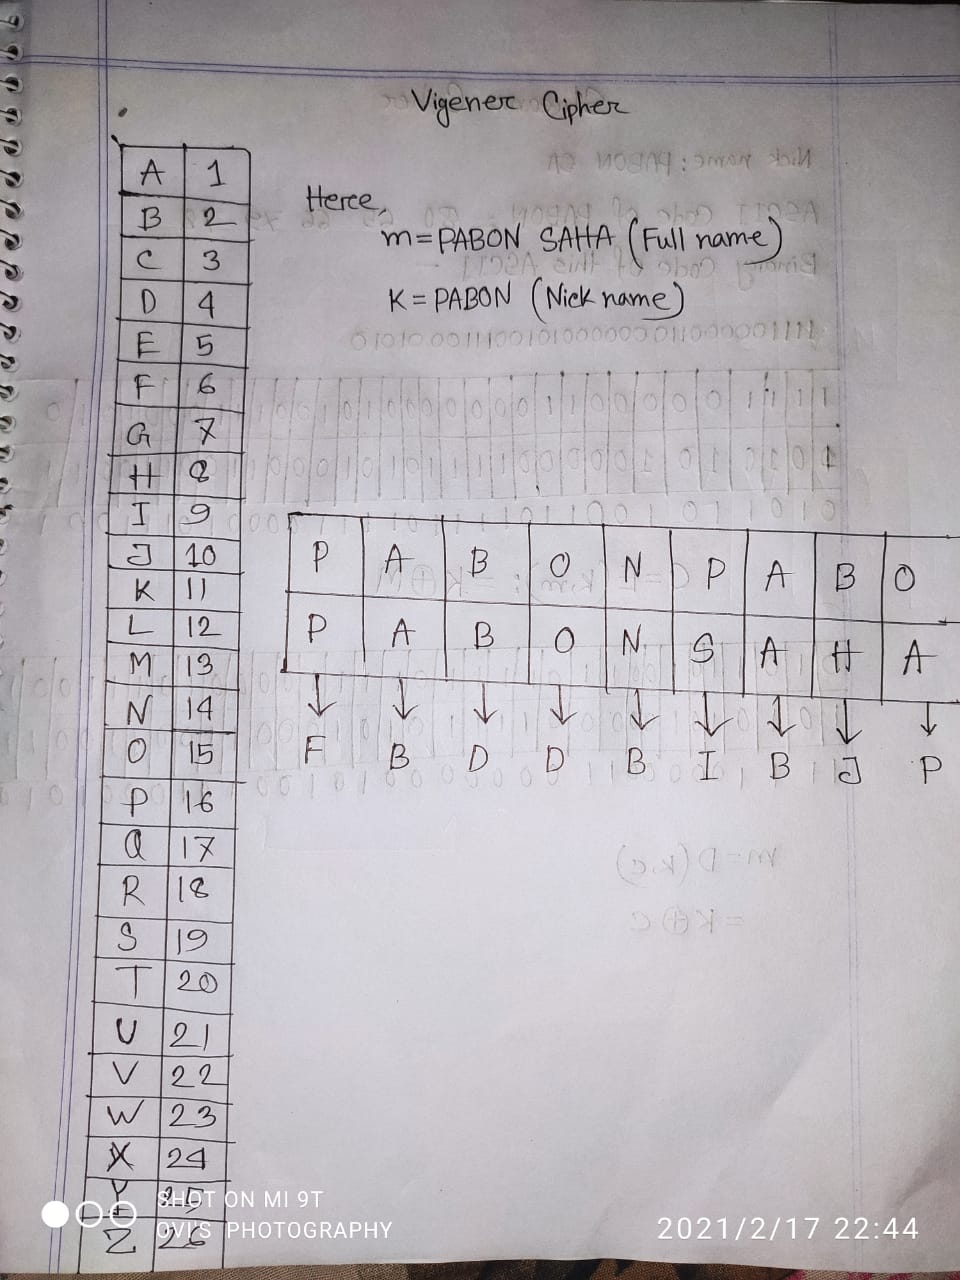 Vigener Cipher
A 1
B 2
C 3
D 4
E 5
F 6
G 7
H 8
I 9
J 10
K 11
L 12
M 13
N 14
O 15
P 16
Q 17
R 18
S 19
T 20
U 21
V 22
W 23
X 24
Y 25
Z 26
Here,
m=PABON SAHA (Full name)
K=PABON (Nick name)
P A B O N P A B O
P A B O N S A H A
↓ ↓ ↓ ↓ ↓ ↓ ↓ ↓ ↓
F B D D B I B J P
SHOT ON MI 9T
OVI'S PHOTOGRAPHY
2021/2/17 22:44